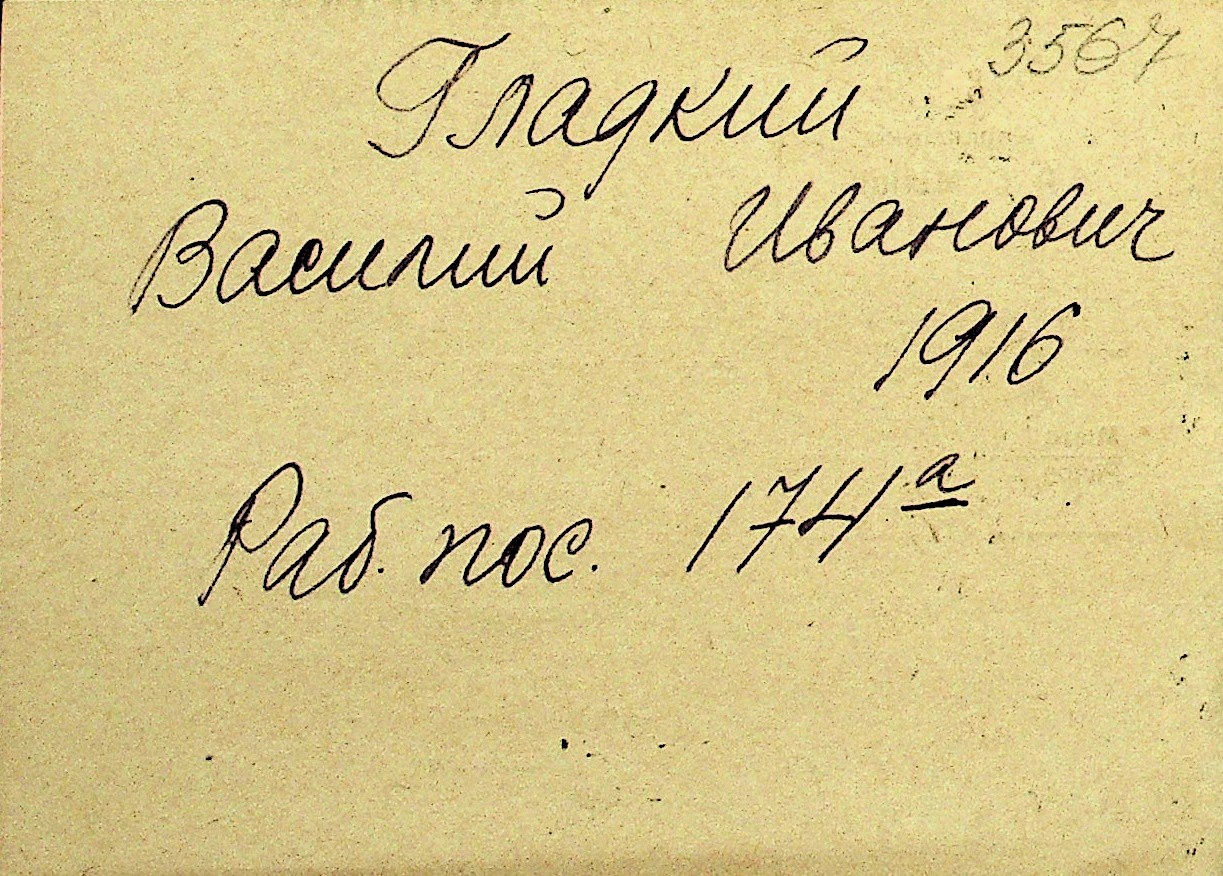 3567
Гладкий
Василий Иванович
1916
Раб. пос. 174а